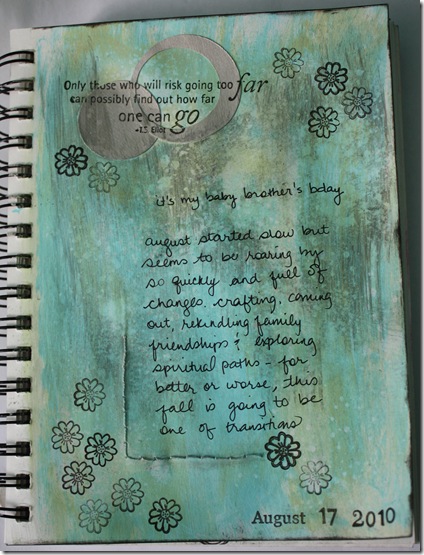 Only those who will risk going too far
can possibly find out how far
one can go
-T.S. Eliot
it's my baby brother's bday
august started slow but
seems to be roaring by
so quickly and full of
changes. crafting, coming
out, rekindling family
friendships & exploring
spiritual paths - for
better or worse, this
fall is going to be
one of transitions
August 17 2010